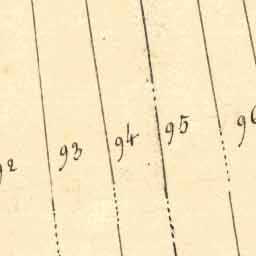 92 93 94 95 96